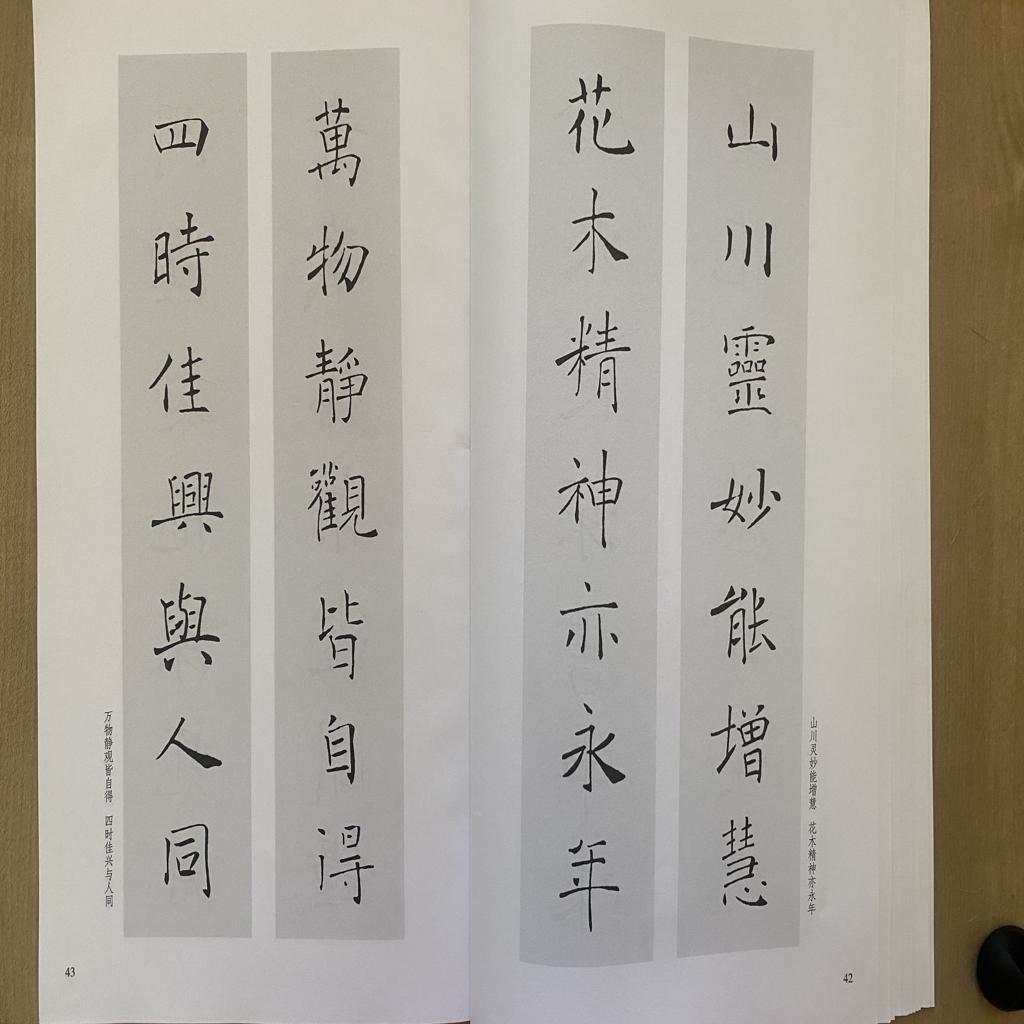 山川靈妙能增慧
花木精神亦永年
山川灵妙能增慧 花木精神亦永年
42
萬物靜觀皆自得
四時佳興與人同
万物静观皆自得 四时佳兴与人同
43